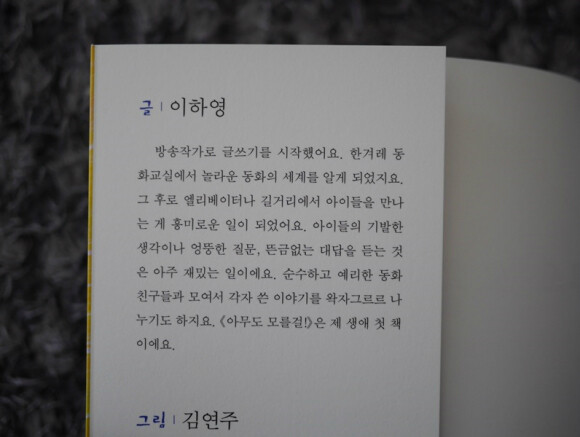 글 | 이하영
방송작가로 글쓰기를 시작했어요. 한겨레 동
화교실에서 놀라운 동화의 세계를 알게 되었지요.
그 후로 엘리베이터나 길거리에서 아이들을 만나
는 게 흥미로운 일이 되었어요. 아이들의 기발한
생각이나 엉뚱한 질문, 뜬금없는 대답을 듣는 것
은 아주 재밌는 일이에요. 순수하고 예리한 동화
친구들과 모여서 각자 쓴 이야기를 왁자그르르 나
누기도 하지요. 《아무도 모를걸!》은 제 생애 첫 책
이에요.
그림 | 김연주